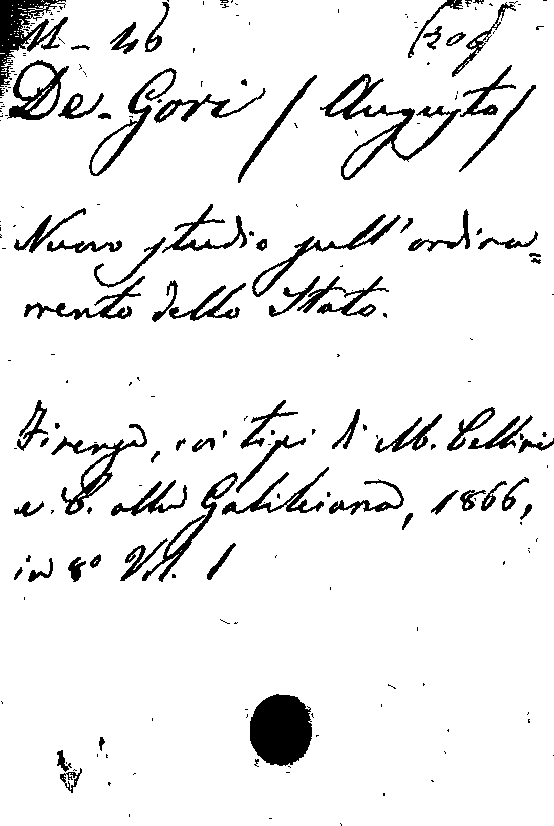 De-Gori / Augusto /
Nuovo studio sull'ordina=
mento dello Stato.
Firenze, coi tipi di M. Cellini
e C. alla Galileiana, 1866,
in 8º Vol. 1